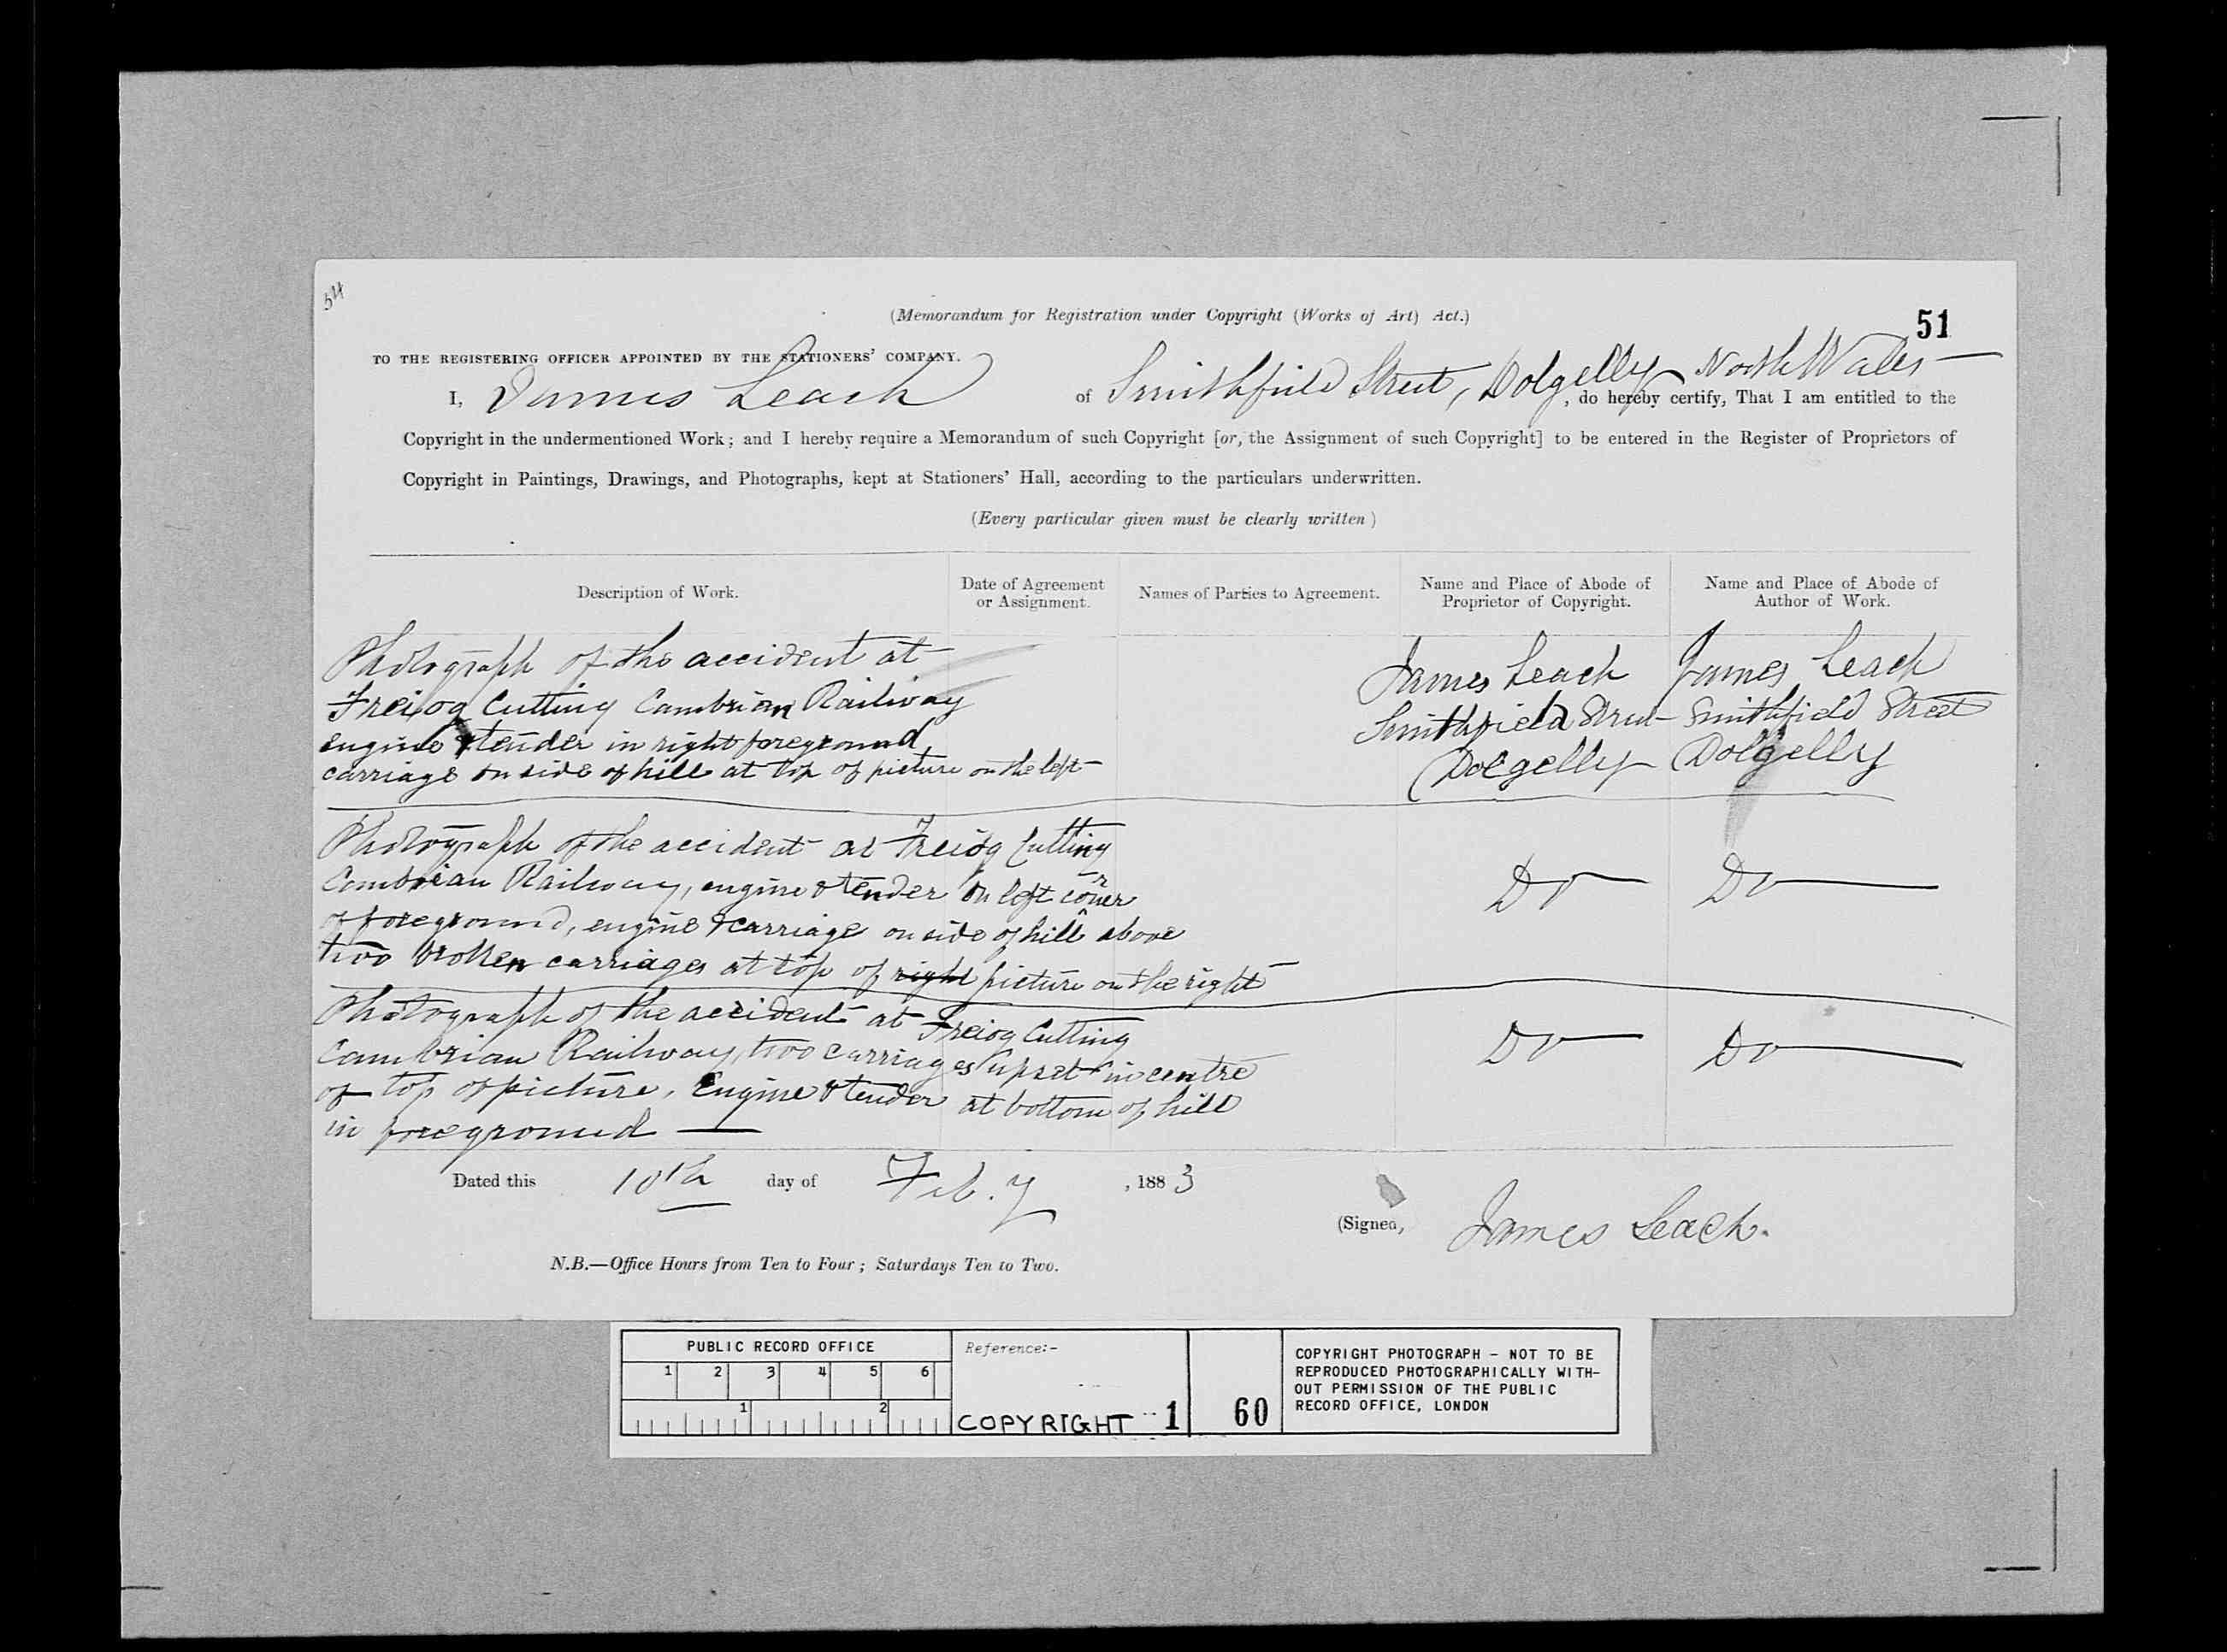 54
(Memorandum for Registration under Copyright (Works of Art) Act.)
51
TO THE REGISTERING OFFICER APPOINTED BY THE STATIONERS' COMPANY.
I, James Leach of Smithfield Street, Dolgelly North Wales, do hereby certify, That I am entitled to the
Copyright in the undermentioned Work; and I hereby require a Memorandum of such Copyright [or, the Assignment of such Copyright] to be entered in the Register of Proprietors of
Copyright in Paintings, Drawings, and Photographs, kept at Stationers' Hall, according to the particulars underwritten.
(Every particular given must be clearly written)
Description of Work.
Date of Agreement
or Assignment.
Names of Parties to Agreement.
Name and Place of Abode of
Proprietor of Copyright.
Name and Place of Abode of
Author of Work.
Photograph of the accident at
Freiog Cutting Cambrian Railway
engine & tender in right foreground
carriage on side of hill at top of picture on the left
James Leach
Smithfield Street
Dolgelly
James Leach
Smithfield Street
Dolgelly
Photograph of the accident at Freiog Cutting
Cambrian Railway, engine & tender on left corner
of foreground, engine & carriage on side of hill above
two broken carriages at top of right picture on the right
Do
Do
Photograph of the accident at Freiog Cutting
Cambrian Railway, two carriages upset in centre
of top of picture. Engine & tender at bottom of hill
in foreground
Do
Do
Dated this 10th day of Feb.y, 1883
(Signed, James Leach.
N.B.—Office Hours from Ten to Four; Saturdays Ten to Two.
PUBLIC RECORD OFFICE
1 2 3 4 5 6
1 2
Reference:-
COPYRIGHT 1
60
COPYRIGHT PHOTOGRAPH - NOT TO BE
REPRODUCED PHOTOGRAPHICALLY WITH-
OUT PERMISSION OF THE PUBLIC
RECORD OFFICE, LONDON